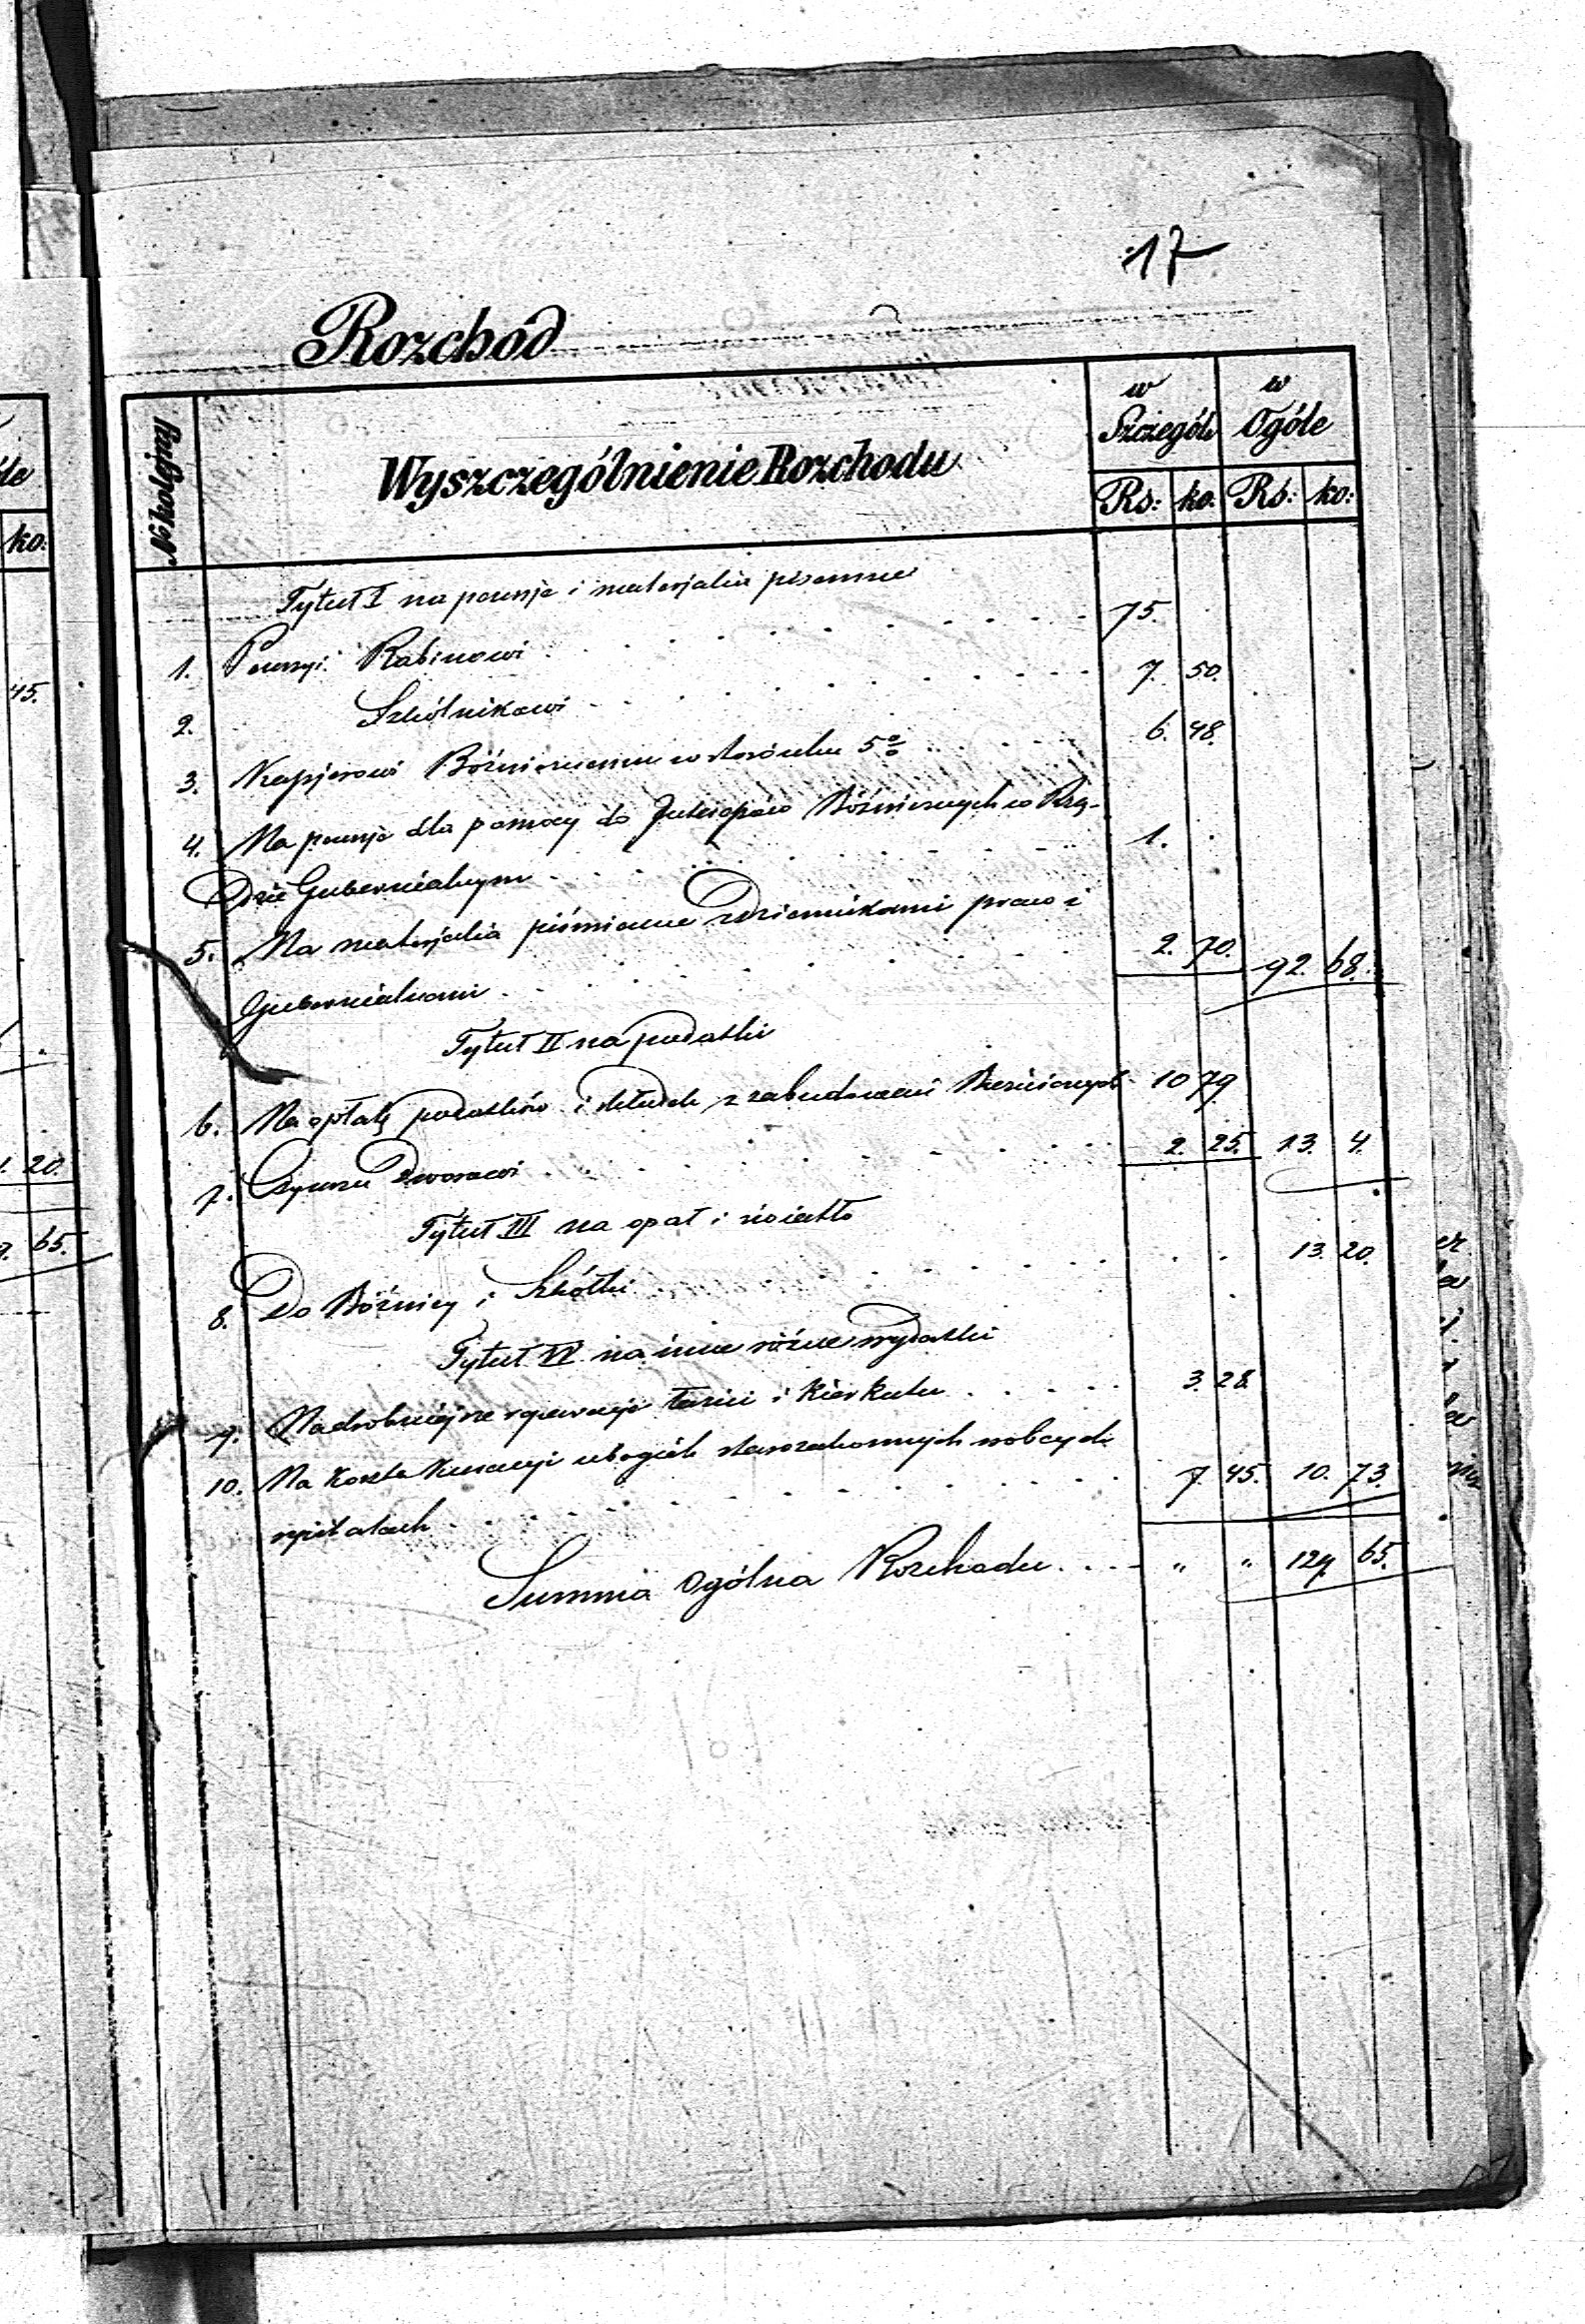 17
Rozchód
№ kolejny
Wyszczególnienie Rozchodu
w Szczególe
w Ogóle
Rs: ko: Rs: ko:
Tytuł I na pensje i materjalia pisemne
1. Pensyi Rabinowi 75.
2. Szkólnikowi 7. 50.
3. Kasjerowi Bóżnicznemu w stosunku 5% 6. 48.
4. Na pensje dla pomocy do Bóżnicznych w Rzą-
dzie Gubernialnym 1.
5. Na materjalia piśmienne z dziennikami praw i
Gubernialnemi 2. 70. 92. 68.
Tytuł II na podatki
6. Na opłatę podatków i składek z zabudowań Bóżnicznych 10 79
7. Czynszu Dworowi 2. 25. 13. 4.
Tytuł III na opał i światło
8. Do Bóżnicy i Szkółki 13. 20.
Tytuł IV na inne różne wydatki
9. Na drobniejsze reperacje łaźni i Kierkutu 3. 28
10. Na Koszta Kuracyi ubogich starozakonnych w obcych
szpitalach 7. 45. 10. 73.
Summa Ogólna Rozchodu " " 129. 65.
ko:
45.
20.
65.